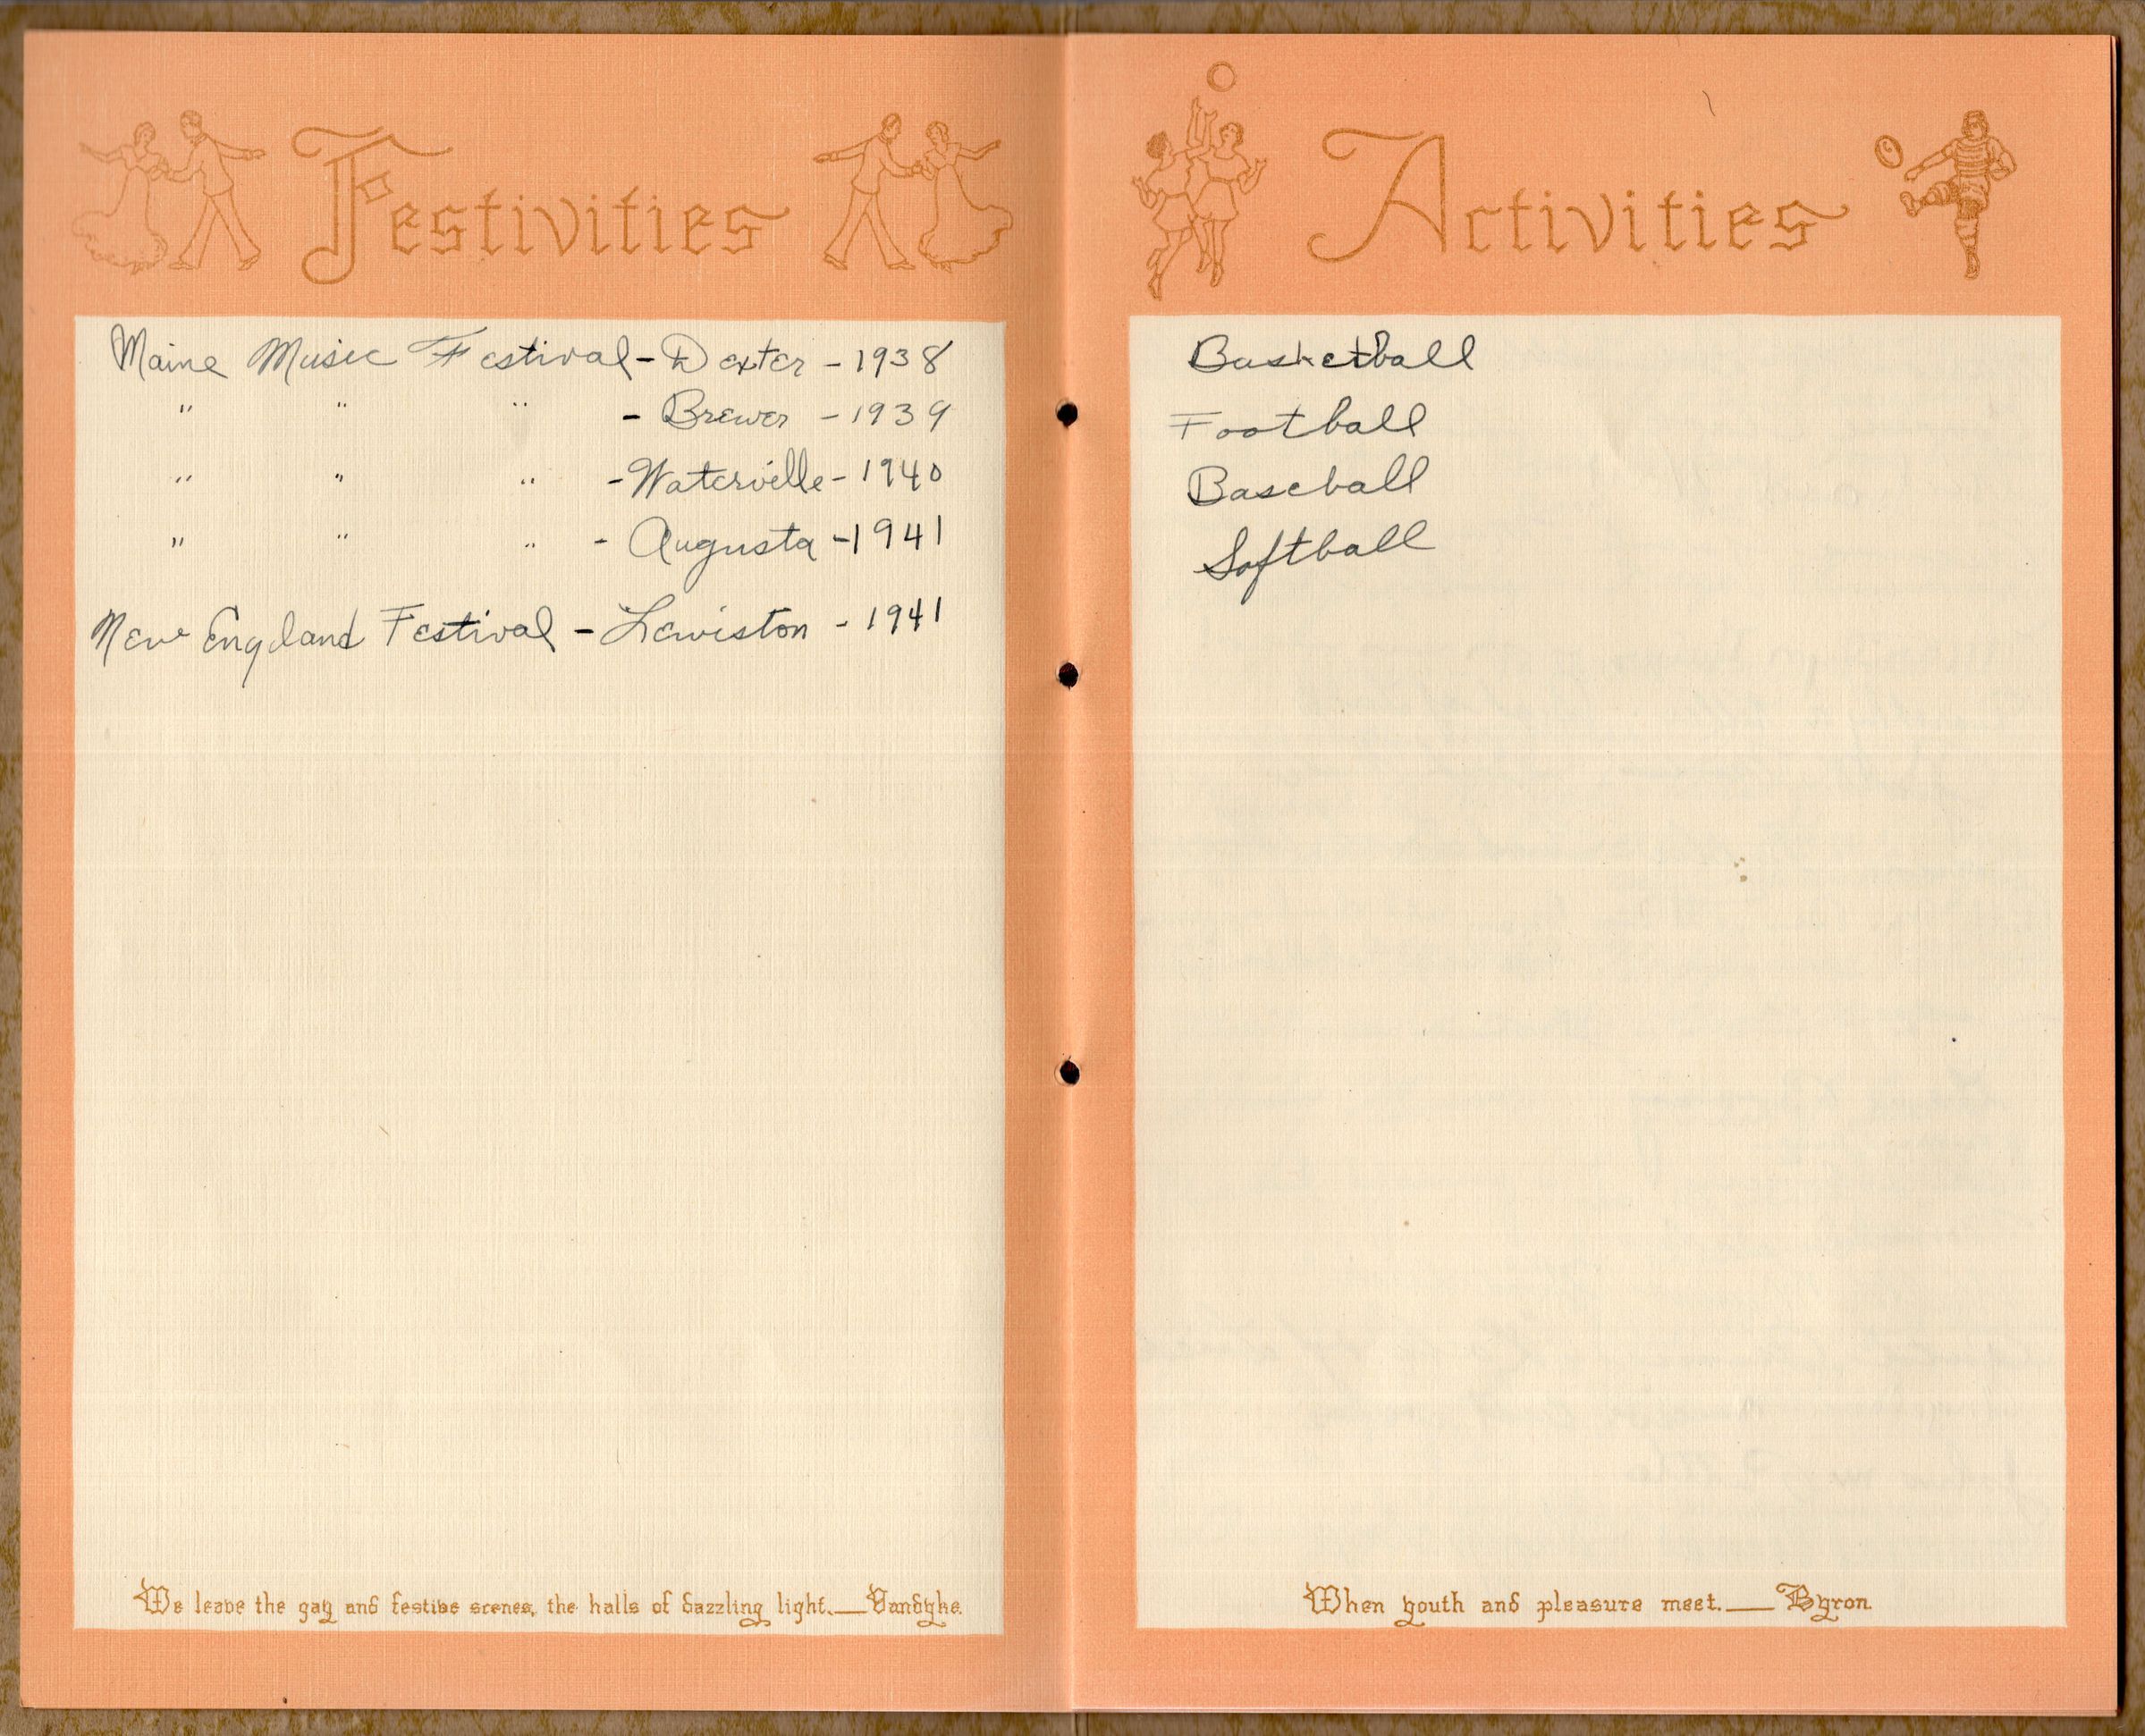 Festivities
Maine Music Festival - Dexter - 1938
" " " - Brewer - 1939
" " " - Waterville - 1940
" " " - Augusta - 1941
New England Festival - Lewiston - 1941
We leave the gay and festive scenes, the halls of dazzling light.—Vandyke.
Activities
Basketball
Football
Baseball
Softball
When youth and pleasure meet.—Byron